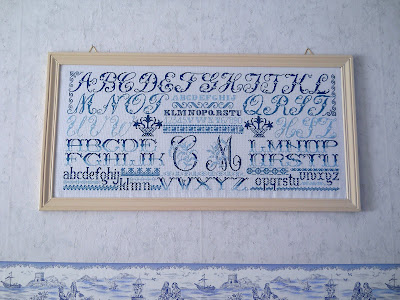 ABCDEFGHIJKL
MNOP QRST
ABCDEFGHIJ
KLMNOPQRSTU
ABCDE
FGHIJK
C M
LMNOP
QRSTU
abcdefghij
klmn
VWXYZ
opqrstu
vwxyz